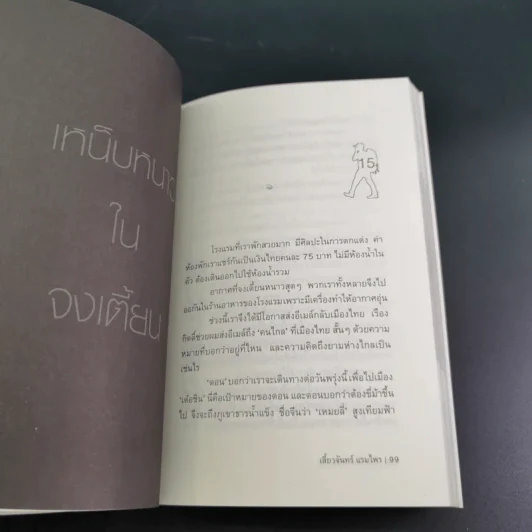 เหน็บหนาว
ใน
จงเตี้ยน
15
โรงแรมที่เราพักสวยมาก มีศิลปะในการตกแต่ง ค่า
ห้องพักเราแชร์กันเป็นเงินไทยคนละ 75 บาท ไม่มีห้องน้ำใน
ตัว ต้องเดินออกไปใช้ห้องน้ำรวม
อากาศที่จงเตี้ยนหนาวสุดๆ พวกเราทั้งหลายจึงไป
ออกันในร้านอาหารของโรงแรมเพราะมีเครื่องทำให้อากาศอุ่น
ช่วงนี้เราจึงได้มีโอกาสส่งอีเมล์กลับเมืองไทย เรือง
กิตติ์ช่วยผมส่งอีเมล์ถึง 'คนไกล' ที่เมืองไทย สั้นๆ ด้วยความ
หมายที่บอกว่าอยู่ที่ไหน และความคิดถึงยามห่างไกลเป็น
เช่นไร
"ดอน" บอกว่าเราจะเดินทางต่อวันพรุ่งนี้เพื่อไปเมือง
"เต๋อชิน" นี่คือเป้าหมายของดอน และดอนบอกว่าต้องขี่ม้าขึ้น
ไป จึงจะถึงภูเขาธารน้ำแข็ง ชื่อจีนว่า "เหมยลี่" สูงเทียมฟ้า
เสี้ยวจันทร์ แรมไพร | 99